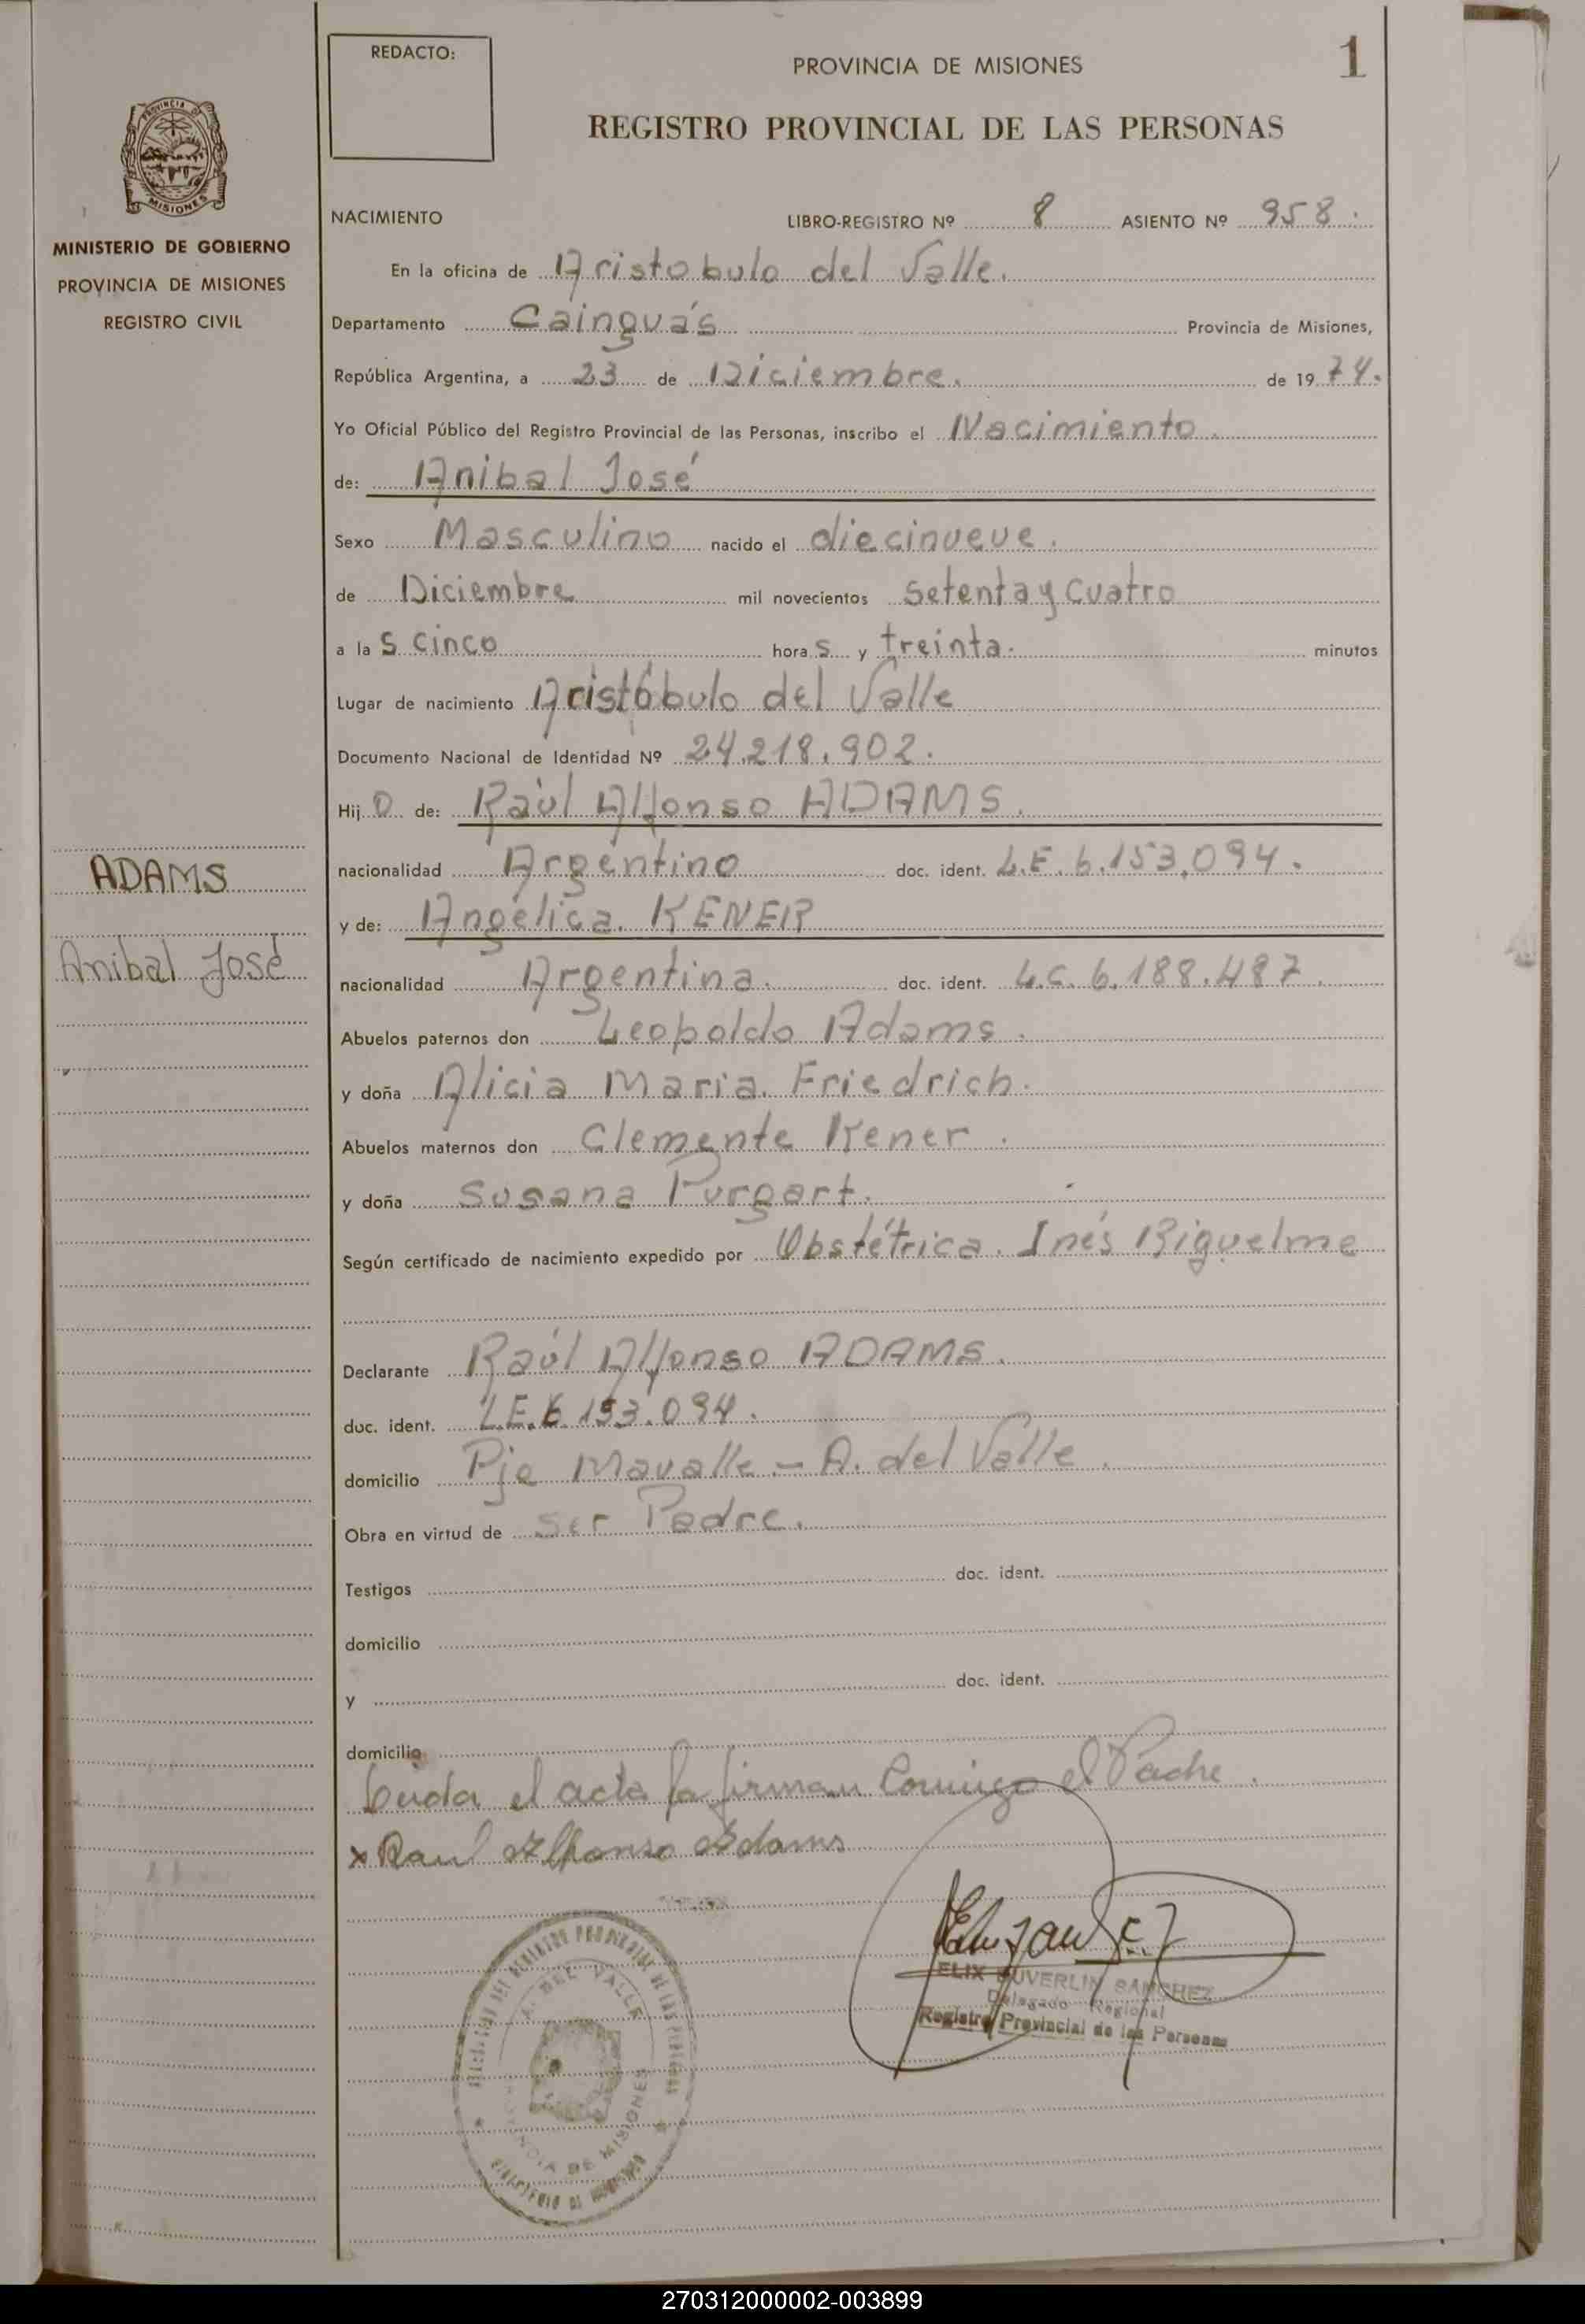 REDACTO:
PROVINCIA DE MISIONES
1
REGISTRO PROVINCIAL DE LAS PERSONAS
PROVINCIA DE
MISIONES
MINISTERIO DE GOBIERNO
PROVINCIA DE MISIONES
REGISTRO CIVIL
NACIMIENTO
LIBRO-REGISTRO Nº 8 ASIENTO Nº 958.
En la oficina de Aristobulo del Valle.
Departamento Cainguás Provincia de Misiones,
República Argentina, a 23 de Diciembre. de 1974.
Yo Oficial Público del Registro Provincial de las Personas, inscribo el Nacimiento.
de: Anibal José
Sexo Masculino nacido el diecinueve.
de Diciembre mil novecientos setenta y cuatro
a las cinco horas y treinta. minutos
Lugar de nacimiento Aristóbulo del Valle
Documento Nacional de Identidad Nº 24.218.902.
Hijo de: Raúl Alfonso ADAMS.
nacionalidad Argentino doc. ident. L.E. 6.153.094.
y de: Angélica. KENER
nacionalidad Argentina. doc. ident. L.C. 6.188.487.
Abuelos paternos don Leopoldo Adams.
y doña Alicia Maria. Friedrich.
Abuelos maternos don Clemente Kener.
y doña Susana Purgart.
Según certificado de nacimiento expedido por Obstétrica. Inés Riquelme
Declarante Raúl Alfonso ADAMS.
doc. ident. L.E. 6.153.094.
domicilio Pje Mavalle - A. del Valle.
Obra en virtud de ser Padre.
Testigos doc. ident.
domicilio
y doc. ident.
domicilio
Leida el acta la firman Conmigo el Padre.
x Raul Alfonso Adams
ADAMS
Anibal José
FELIX DUVERLIN SANCHEZ
Delegado Regional
Registro Provincial de las Personas
DEL REGISTRO PROVINCIAL DE LAS PERSONAS
A. DEL VALLE
PROVINCIA DE MISIONES
MINISTERIO DE GOBIERNO
270312000002-003899